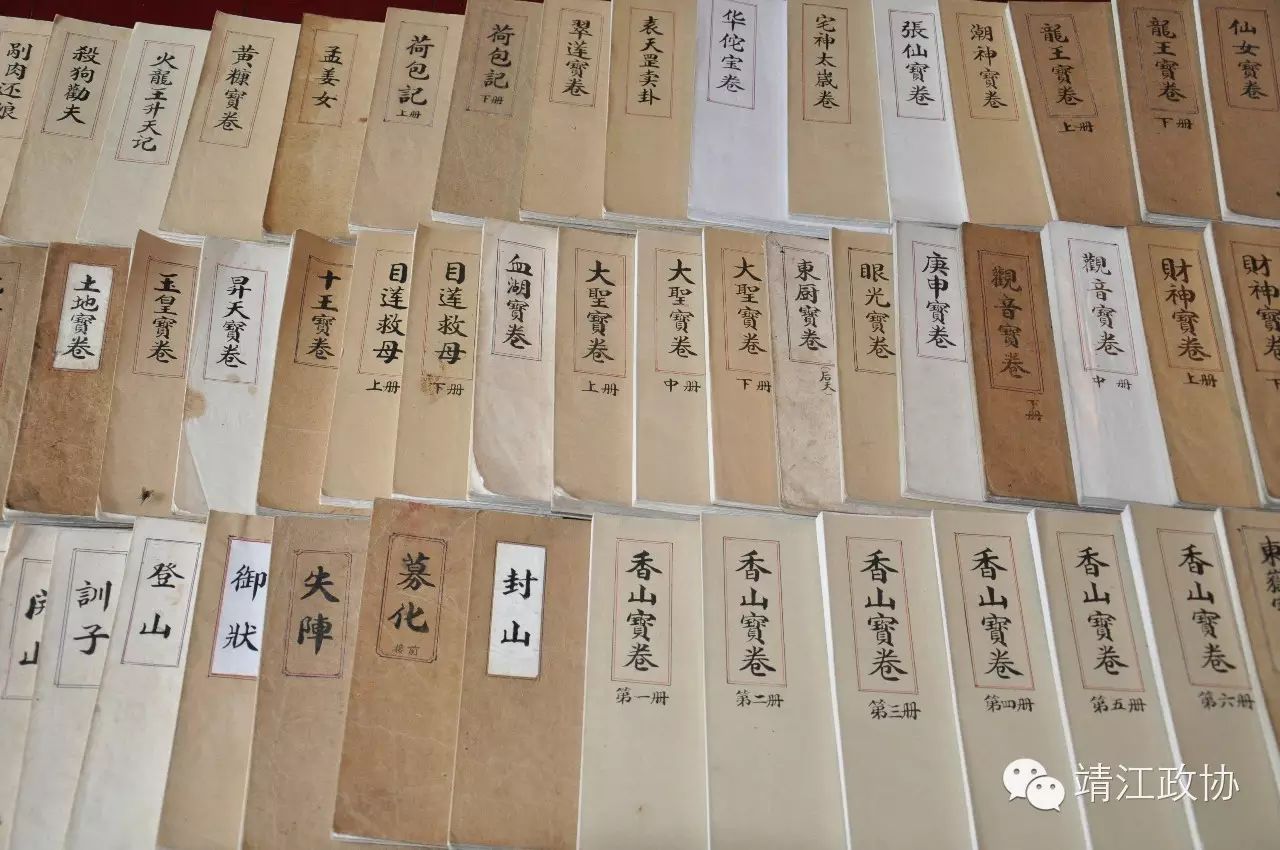 剐肉还娘
殺狗勸夫
火龍王升天记
黄糠寳卷
孟姜女
荷包記
上册
荷包記
下册
翠莲寳卷
袁天罡卖卦
华佗宝卷
宅神太歲卷
張仙寳卷
潮神寳卷
龍王寳卷
上册
龍王寳卷
下册
仙女寳卷
土地寳卷
玉皇寳卷
昇天寳卷
十王寳卷
目莲救母
上册
目莲救母
下册
血湖寳卷
大聖寳卷
上册
大聖寳卷
中册
大聖寳卷
下册
東厨寳卷
(后天)
眼光寳卷
庚申寳卷
觀音寳卷
下册
觀音寳卷
中册
財神寳卷
上册
財神寳卷
下
開山
訓子
登山
御狀
失陣
募化
接前
封山
香山寳卷
第一册
香山寳卷
第二册
香山寳卷
第三册
香山寳卷
第四册
香山寳卷
第五册
香山寳卷
第六册
東嶽
靖江政协